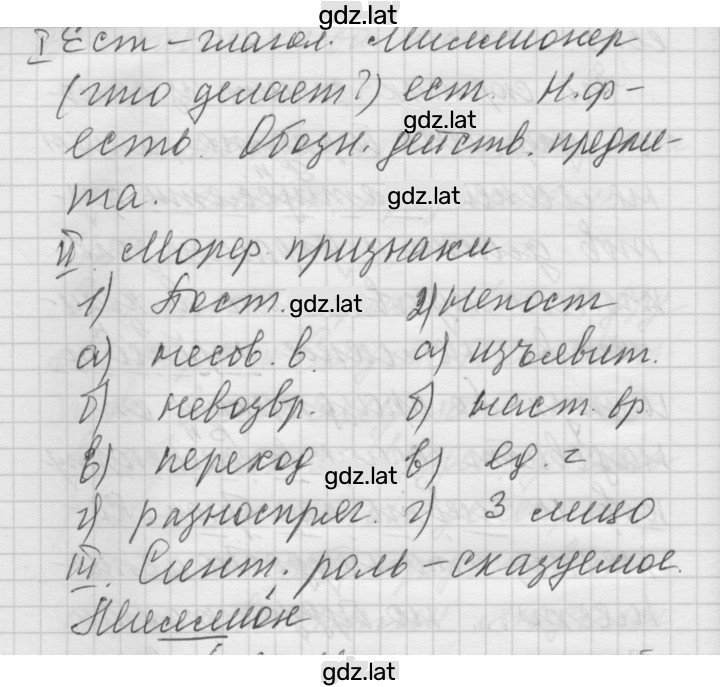 gdz.lat
I Ест – глагол. Миллионер
(что делает?) ест. Н.ф-
gdz.lat
есть. Обозн. действ. предме-
та. gdz.lat
II Морф. признаки
1) Пост. gdz.lat 2) непост
а) несов. в. а) изъявит.
б) невозвр. б) наст. вр
в) переход в) ед. ч
gdz.lat
г) разноспряг. г) 3 лицо
III. Синт. роль – сказуемое.
Миллио́н
gdz.lat